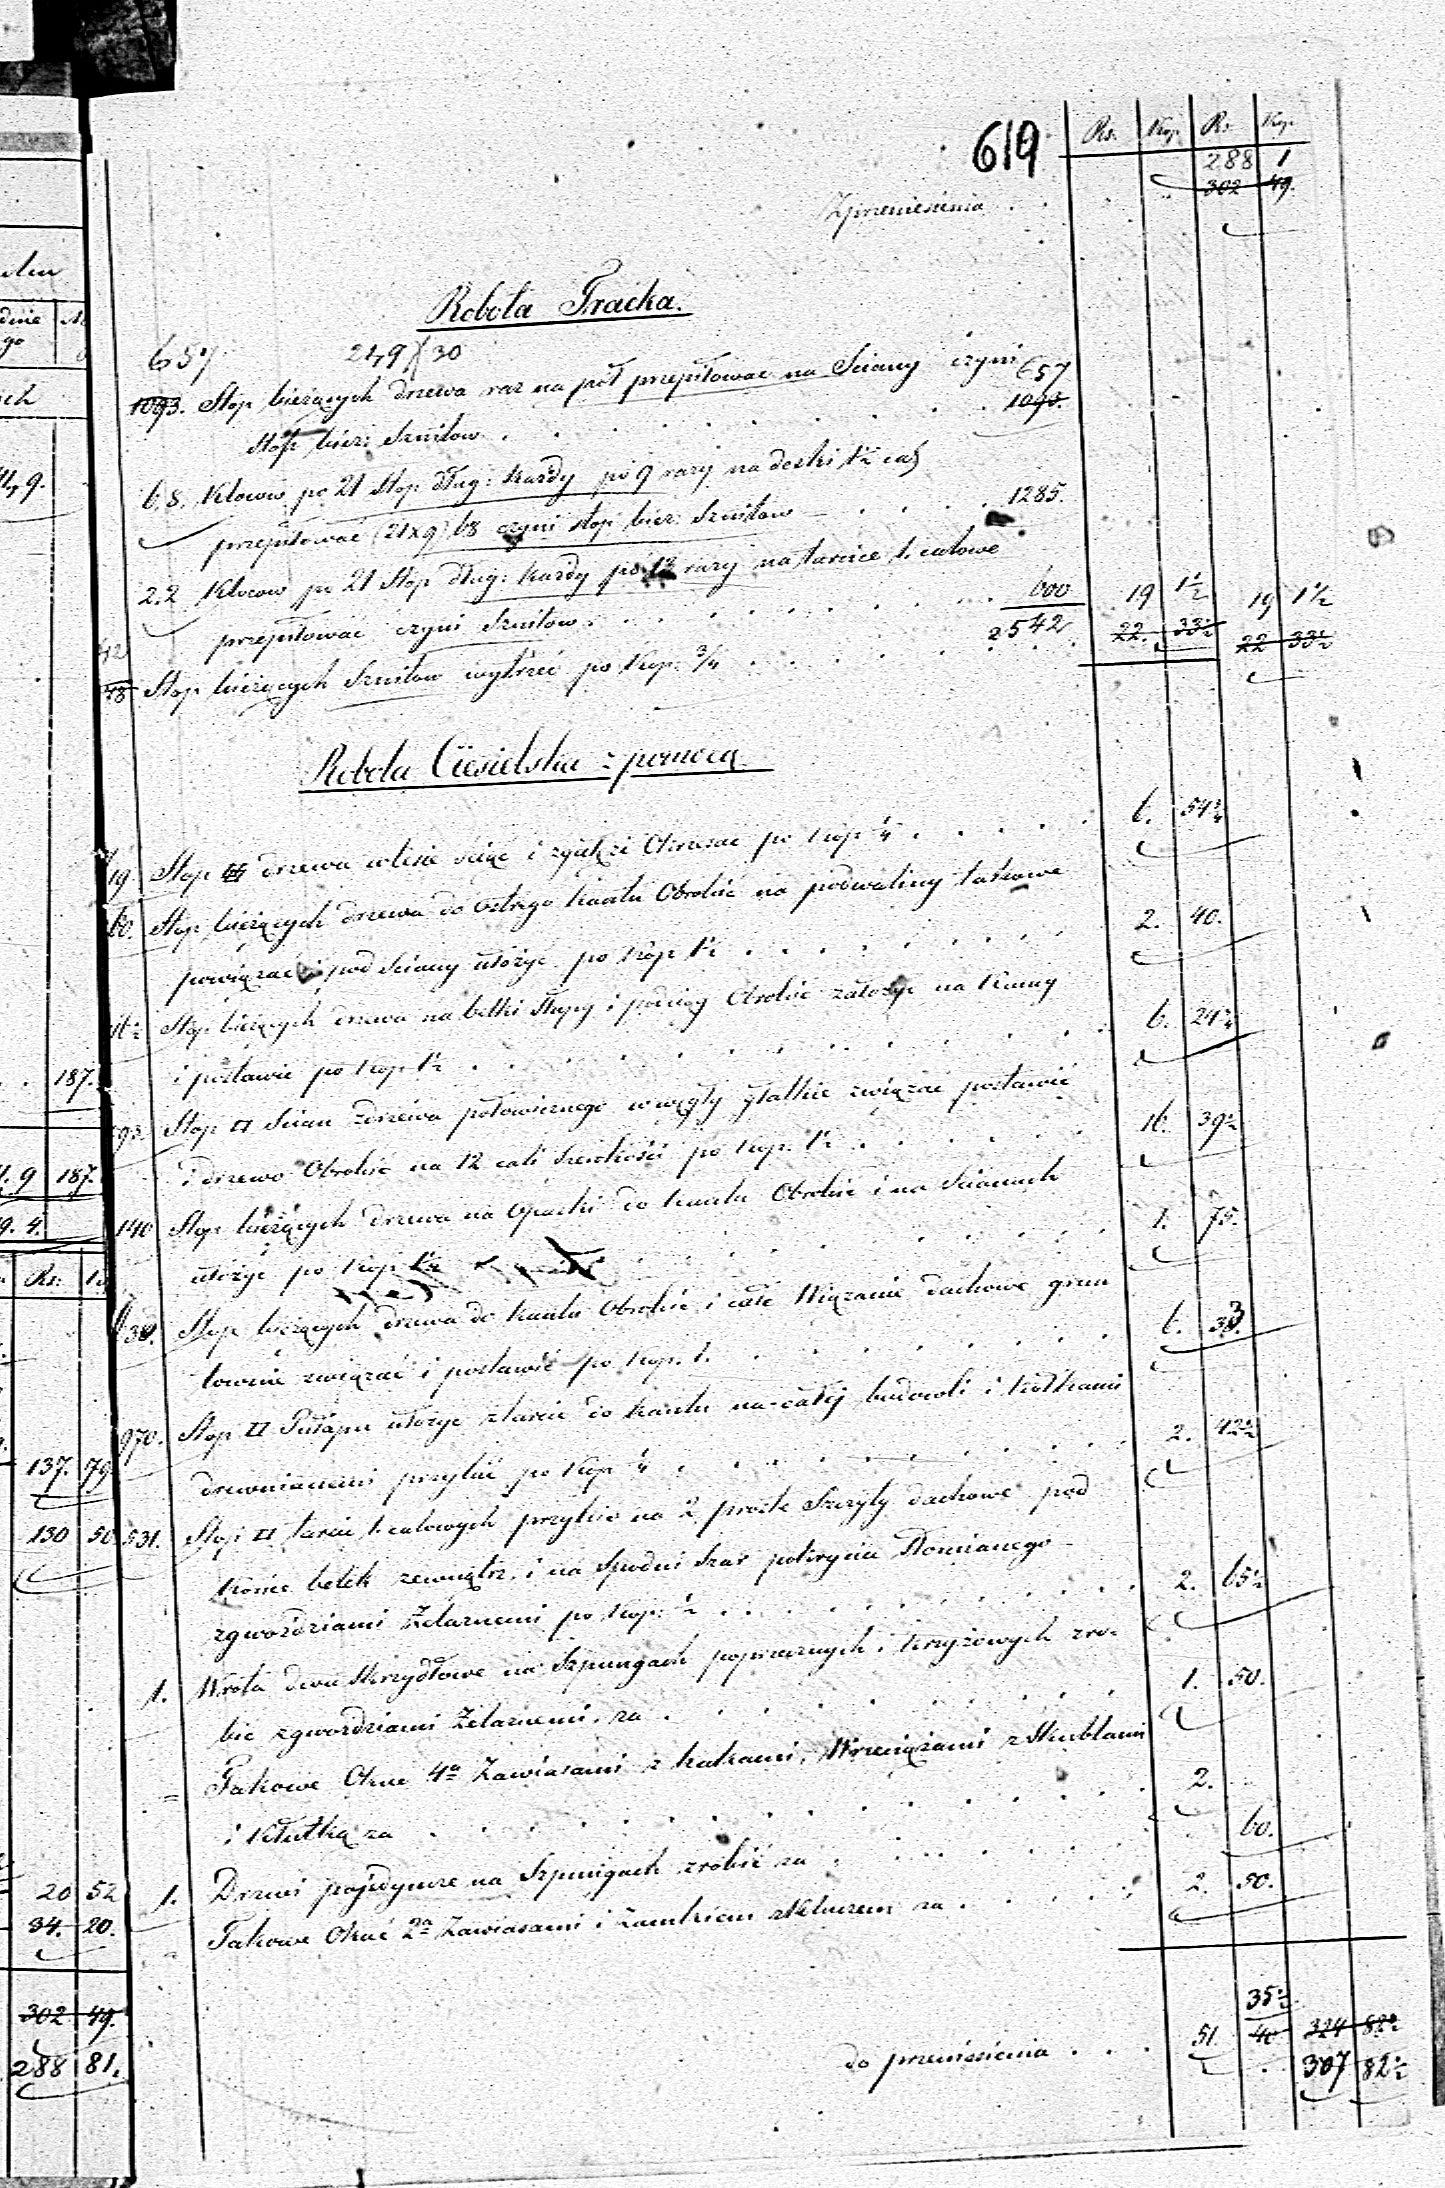 619
Rs. Kop. Rs. Kop.
288 1
Zprzeniesienia . . 302 49.
Robota Tracka.
657 21,9 30
1093. Stop bieżących drzewa raz na pół przepiłować na Sciany czyni 657
Stóp bież: Sznitow . . . . . . 1093.
68. Klocow po 21 Stop dług: każdy po 9 razy na deski 1½ cal
przepiłować (21x9) 68 czyni stop bież: Sznitow . . . . 1285.
22 Klocow po 21 Stop dług: każdy po 12 razy na tarcice 1. calowe
przepiłować czyni Sznitow . . . . . . 600 19 1½ 19 1½
2542 22. 33½ 22 33½
Stop bieżących Sznitow wyrżnąć po Kop. ¾ . . . . .
Robota Ciesielska z pomocą
19 Stop drzewa w lesie ściąć i Obrusac po Kop ¼ . . . . . 6. 54¾
60. Stop bieżących drzewa do ostrego kantu Obrobić na podwaliny takowe
powiązać i pod Sciany ułożyć po Kop 1½ . . . . . . 2. 40.
16½ Stop bieżących drzewa na belki Słupy i podciąg Obrobić założyć na Ramy
i postawić po Kop 1½ . . . . . . 6. 24¾
93. Stop □ Scian z drzewa połowicznego w węgły gładkie związać postawić
i drzewo Obrobić na 12 cali szerokości po Kop. 1½ . . . . . . 16. 39½
140 Stop bieżących drzewa na Opaski do kantu Obrobić i na Scianach
ułożyć po Kop 1¼ . . . . . . 1. 75.
638. Stop bieżących drzewa do kantu Obrobić i całe Wiązanie dachowe grun
townie związać i postawić po Kop. 1. . . . . . . 6. 38.
970. Stop □ Pułapu ułożyć z tarcic do kantu na całej budowli i kołkami
drewnianemi przybić po Kop ¼ . . . . . . 2. 42½
531. Stop □ tarcic 1. calowych przybić na 2 proste Szczyty dachowe pod
Końce belek zewnątrz. i na Spodni Szar pokrycia Słomianego
zgwoździami Żelaznemi po Kop: ½ . . . . . . 2. 65½
1. Wrota dwu Skrzydłowe na Szpungach poprzecznych i krzyżowych zro-
bić zgwoździami Żelaznemi. za . . . . . . 1. 50.
= Takowe Okuć 4ª Zawiasami z hakami, Wrzeciązami z Skublami
i Kłutką za . . . . . . 2.
1. Drzwi pojedyncze na Szpungach zrobić za . . . . . . 60.
" Takowe Okuć 2ª Zawiasami i zamkiem z Kluczem za . . . . . . 2. 50.
35½
do przeniesienia . . . 51 40 324 82½
307 82½
187.
9 187.
9. 4.
Rs:
137. 79.
130 50
20 52
34. 20.
302 49.
288 81.